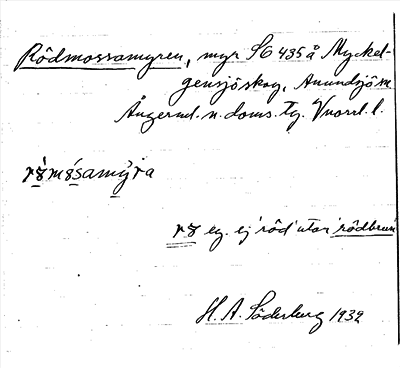 Rödmossamyren, myr SO 435 å Myckel-
gensjöskog, Anundsjö sn
Ångerml. n. doms. tg. Vnorrl. l.
mȯsamy̍ra
eg. ej 'röd' utan 'rödbrun'
H. A. Söderberg 1932